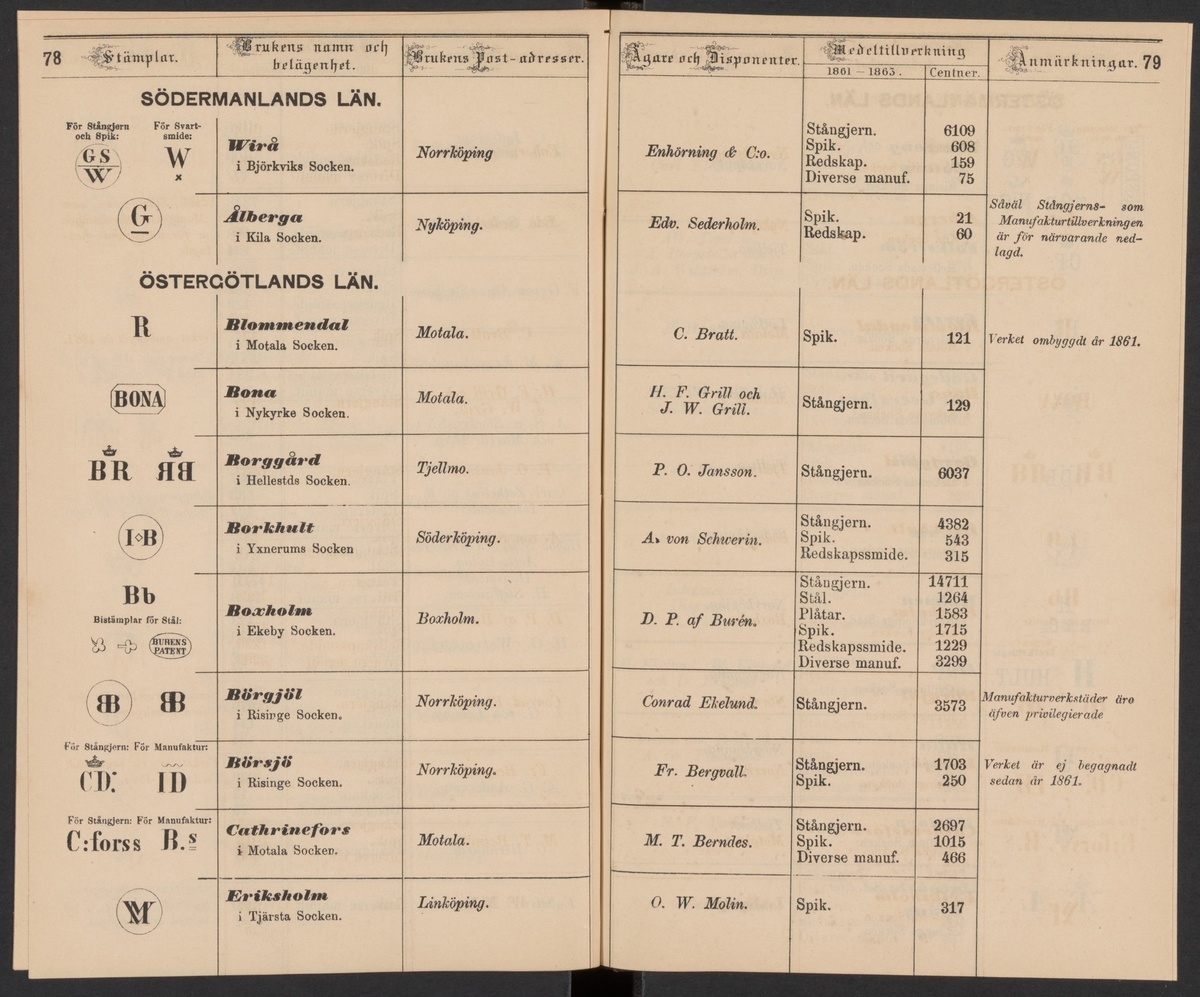 78 Stämplar. Brukens namn och belägenhet. Brukens Post-adresser. Ägare och Disponenter. Medeltillverkning 1861 – 1863. Centner. Anmärkningar. 79
SÖDERMANLANDS LÄN.
För Stångjern och Spik: För Svartsmide:
GS W W ×
Wirå
i Björkviks Socken.
Norrköping
Enhörning & C:o.
Stångjern. 6109
Spik. 608
Redskap. 159
Diverse manuf. 75
G
Ålberga
i Kila Socken.
Nyköping.
Edv. Sederholm.
Spik. 21
Redskap. 60
Såväl Stångjerns- som
Manufakturtillverkningen
är för närvarande ned-
lagd.
ÖSTERGÖTLANDS LÄN.
R
Blommendal
i Motala Socken.
Motala.
C. Bratt.
Spik. 121
Verket ombyggdt år 1861.
BONA
Bona
i Nykyrke Socken.
Motala.
H. F. Grill och
J. W. Grill.
Stångjern. 129
BR RB
Borggård
i Hellestds Socken.
Tjellmo.
P. O. Jansson.
Stångjern. 6037
I◇B
Borkhult
i Yxnerums Socken
Söderköping.
A. von Schwerin.
Stångjern. 4382
Spik. 543
Redskapssmide. 315
Bb
Bistämplar för Stål:
BURENS
PATENT
Boxholm
i Ekeby Socken.
Boxholm.
D. P. af Burén.
Stångjern. 14711
Stål. 1264
Plåtar. 1583
Spik. 1715
Redskapssmide. 1229
Diverse manuf. 3299
BB BB
Börgjöl
i Risinge Socken.
Norrköping.
Conrad Ekelund.
Stångjern. 3573
Manufakturverkstäder äro
äfven privilegierade
För Stångjern: För Manufaktur:
CD: ID
Börsjö
i Risinge Socken.
Norrköping.
Fr. Bergvall.
Stångjern. 1703
Spik. 250
Verket är ej begagnadt
sedan år 1861.
För Stångjern: För Manufaktur:
C:forss B.s
Cathrinefors
i Motala Socken.
Motala.
M. T. Berndes.
Stångjern. 2697
Spik. 1015
Diverse manuf. 466
Eriksholm
i Tjärsta Socken.
Linköping.
O. W. Molin.
Spik. 317